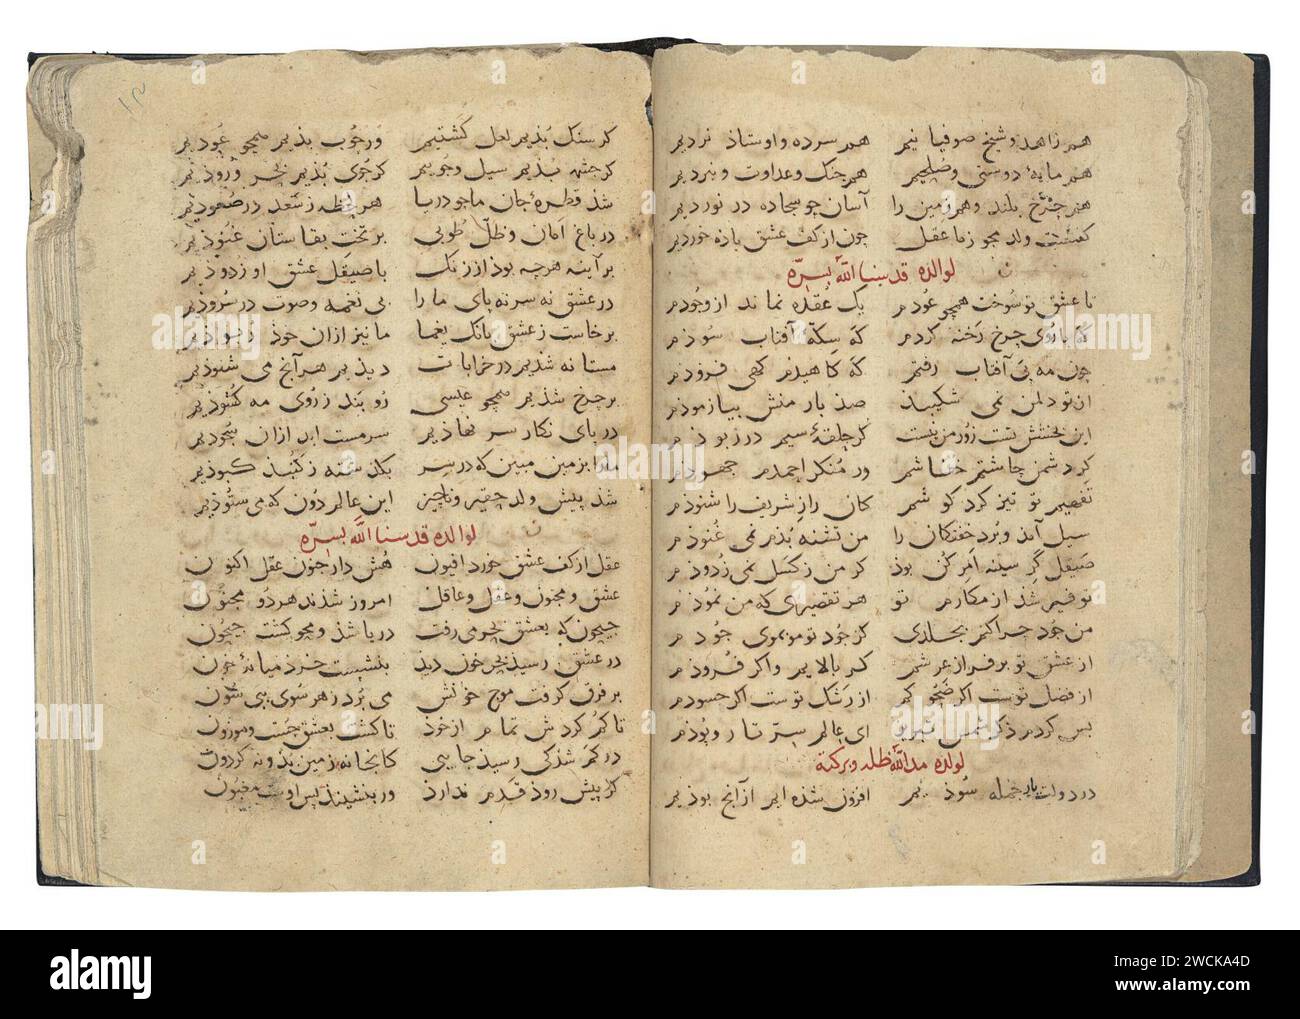 هم زاهد و شیخ صوفیانیم هم سرده و اوستاذ نردیم
هم مایهٔ دوستی و صلحیم هم جنک و عداوت و نبردیم
هم چرخ بلند و هم زمین را آسان چو سجاده در نوردیم
کفتست ولد مجو زما عقل چون از کف عشق باذه خوردیم
لوالده قدسنا الله بسره
تا عشق تو سوخت همچو عودم یک عقده نماند از وجودم
که باروی چرخ رخنه کردم که سکهٔ آفتاب سوذم
چون مه پی آفتاب رفتم که کاهیذم کهی فزوذم
از تو دل من نمی شکیبد صذ بار منش بیازموذم
این بخشش تست زور من نیست کر حلقهٔ سیم در ربوذم
کر دشمن چاشتم خفاشم ور منکر احمدم جهوذم
تفهیم تو تیز کرد کوشم کان راز شریف را شنوذم
سیل آمد و برد خفتکان را من تشنه بذم نمی غنوذم
صیقل کر سینه امر کن بوذ کر من ز کسل نمی زدوذم
توفیر شد از مکارم تو هر تقصیری که من نموذم
من جود چرا کنم بجلدی کز جود تو مو بموی جودم
از عشق تو بر فراز عرشم کر بالایم و اکر فروذم
از فضل توست اکر ضحوکم از رشک توست اکر حسودم
بس کردم ذکر شمس تبریز ای عالم سر تار و پوذم
لولده مد الله ظله و برکته
در دولت یار جمله سوذیم افزون شذه ایم از آنچ بوذیم
کر سنک بذیم لعل کشتیم ور چوب بذیم همچو عودیم
کر چشمه بذیم سیل و جوییم کر جوی بذیم بحر و روذیم
شذ قطرهٔ جان ما چو دریا هر لحظه ز شعد در صعوذیم
در باغ امان و ظل طوبی بر تخت بقاستان غنوذیم
بر آینه هرچه بوذ از زنک با صیقل عشق او زدوذیم
در عشق نه سر نه پای ما را بی نغمه و صوت در سروذیم
برخاست ز عشق بانک یغما ما نیز از آن خوذ ربوذیم
مستانه شذیم در خرابات دیذیم هر آنچ می شنوذیم
بر چرخ شذیم همچو عیسی رو بند ز روی مه کشوذیم
در پای نکار سر نهاذیم سرمست ابد از ان سجودیم
ما را بزمین مبین که در سر بکذشته ز کنبذ کبوذیم
شذ پیش ولد حقیر و ناچیز این عالم دون که می ستوذیم
لوالده قدسنا الله بسره
عقل از کف عشق خورد افیون هش دار جنون عقل اکنون
عشق و مجنون و عقل و عاقل امروز شذند هر دو مجنون
جیحون که بعشق بحر می رفت دریا شذ و محو کشت جیحون
در عشق رسیذ بحر خون دید بنشست خرذ میانهٔ خون
بر فرق کرفت موج خونش می برد ز هر سوی بی سون
تا کم کردش تمام از خوذ تا کشت بعشق چست و موزون
در کم شذکی رسیذ جایی کانجا نه زمین بذ و نه کردون
کر پیش روذ قدم ندارد ور بنشیند پس اوست مغبون